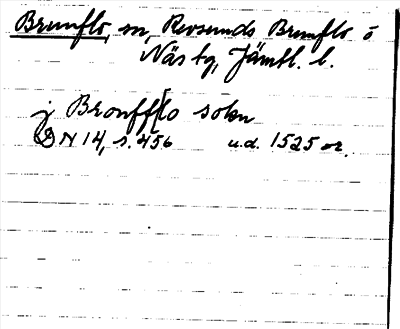 Brunflo, sn, Revsunds Brunflo o
Näs tg, Jämtl. l.
j Bronffflo sokn
DN 14, s. 456 u.d. 1525 or.